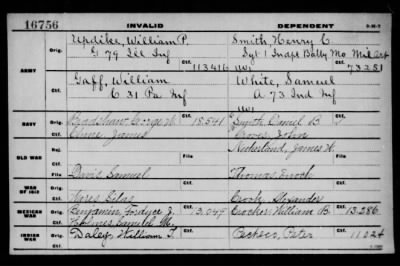 16756 INVALID DEPENDENT
Orig. Updike, William P. Smith, Henry C
G 79 Ill Inf Sgt 1 Indpt Batty Mo Mil Art
Ctf. 113416 73251
ARMY
Orig. Gaff, William White, Samuel
C 31 Pa Inf A 73 Ind Inf
Ctf.
NAVY Orig. Bradshaw, George W. 18,541 Smith, Daniel B
Ctf. James John
Orig. Netherland, James W.
OLD WAR File File
Ctf. Davis, Samuel Thomas, Enoch
WAR OF 1812 Orig.
Ctf. Silas Crook, Alexander
MEXICAN WAR Orig. Benjamin, Fordyce Z. 13,049 Crocker, William B 13,286
Ctf. Holmes, Samuel M.
INDIAN WAR Orig. Daley, William T. Peter 11024
Ctf.